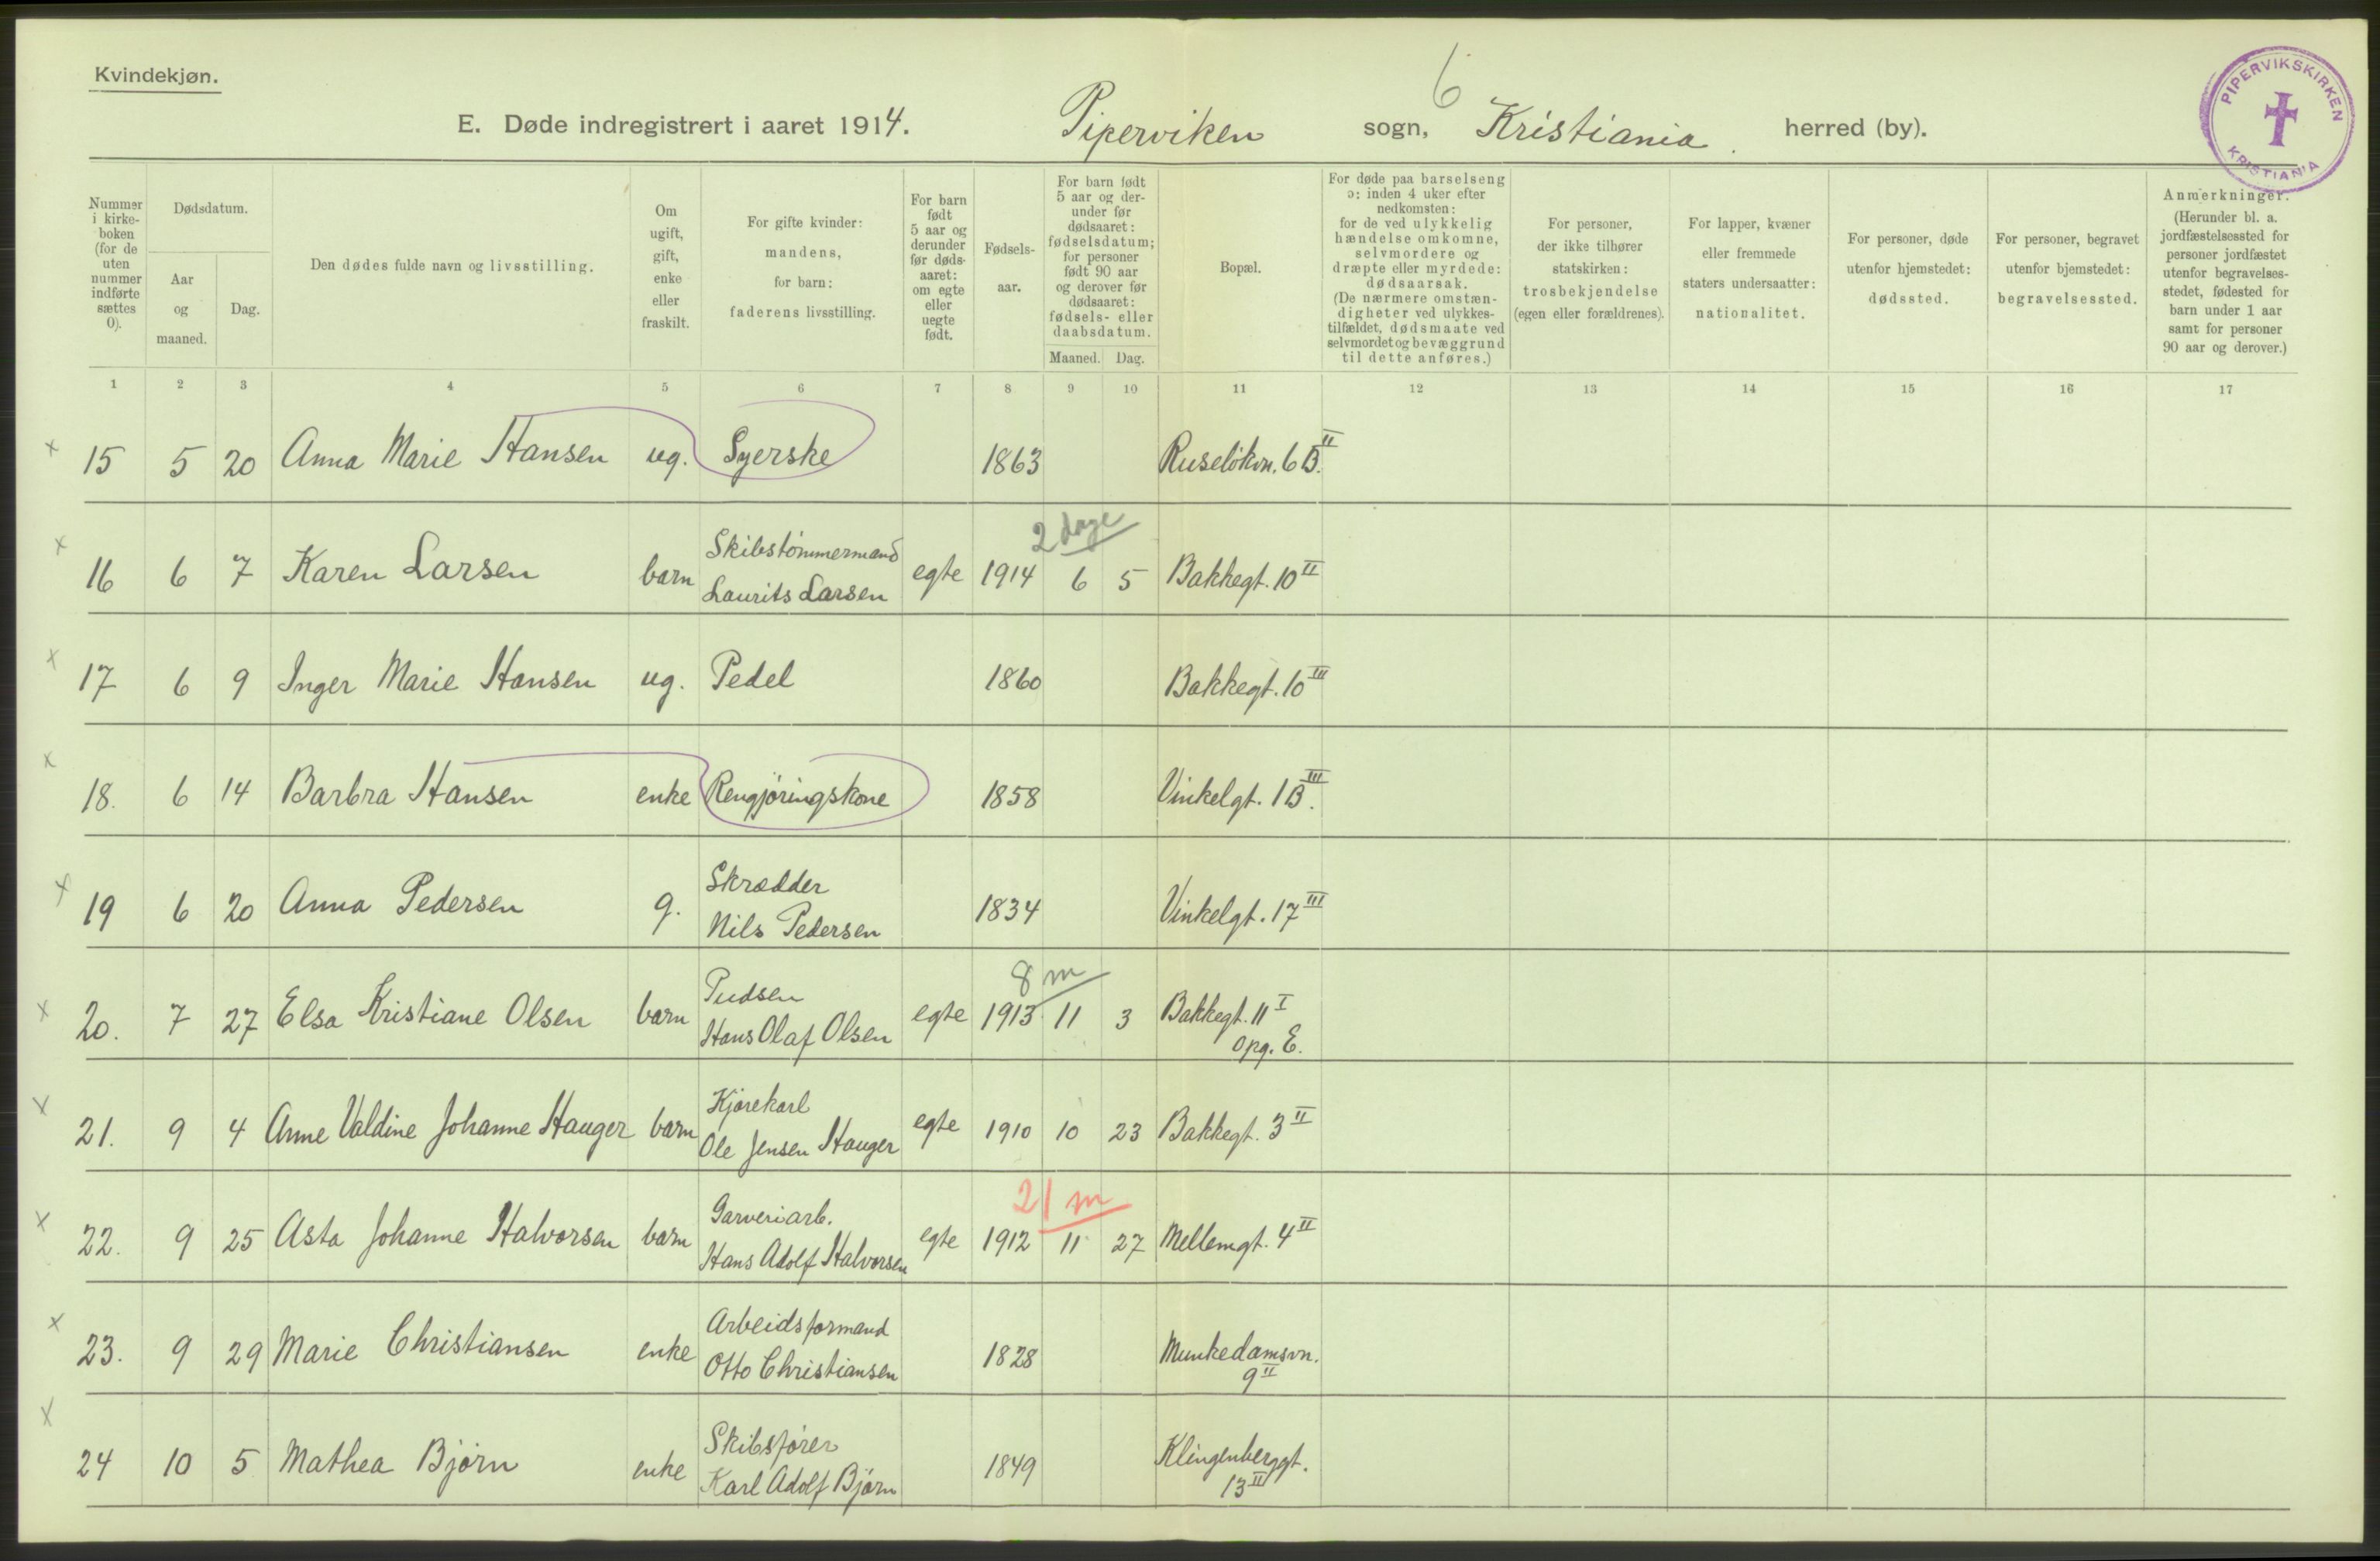 Kvindekjøn.
6
E. Døde indregistrert i aaret 1914. Piperviken sogn, Kristiania. herred (by).
PIPERVIKSKIRKEN KRISTIANIA
Nummer i kirke-boken (for de uten nummer indførte sættes 0).
Dødsdatum.
Aar og maaned.
Dag.
Den dødes fulde navn og livsstilling.
Om ugift, gift, enke eller fraskilt.
For gifte kvinder: mandens, for barn: faderens livsstilling.
For barn født 5 aar og derunder før døds-aaret: om egte eller uegte født.
Fødsels-aar.
For barn født 5 aar og der-under før dødsaaret: fødselsdatum; for personer født 90 aar og derover før dødsaaret: fødsels- eller daabsdatum.
Maaned. Dag.
Bopæl.
For døde paa barselseng ɔ: inden 4 uker efter nedkomsten: for de ved ulykkelig hændelse omkomne, selvmordere og dræpte eller myrdede: dødsaarsak. (De nærmere omstæn-digheter ved ulykkes-tilfældet, dødsmaate ved selvmordet og bevæggrund til dette anføres.)
For personer, der ikke tilhører statskirken: trosbekjendelse (egen eller forældrenes).
For lapper, kvæner eller fremmede staters undersaatter: nationalitet.
For personer, døde utenfor hjemstedet: dødssted.
For personer, begravet utenfor bjemstedet: begravelsessted.
Anmerkninger. (Herunder bl. a. jordfæstelsessted for personer jordfæstet utenfor begravelses-stedet, fødested for barn under 1 aar samt for personer 90 aar og derover.)
1 2 3 4 5 6 7 8 9 10 11 12 13 14 15 16 17
x 15 5 20 Anna Marie Hansen ug. Syerske 1863 Ruseløkvn. 6 B. II
2 dage
x 16 6 7 Karen Larsen barn Skibstømmermand Laurits Larsen egte 1914 6 5 Bakkegt. 10 II
x 17 6 9 Inger Marie Hansen ug. Pedel 1860 Bakkegt. 10 III
x 18. 6 14 Barbra Hansen enke Rengjøringskone 1858 Vinkelgt. 1 B. III
x 19 6 20 Anna Pedersen g. Skrædder Nils Pedersen 1834 Vinkelgt. 17 III
8 m
x 20. 7 27 Elsa Kristiane Olsen barn Pudsen Hans Olaf Olsen egte 1913 11 3 Bakkegt. 11 I opg. E.
x 21. 9 4 Anne Valdine Johanne Hauger barn Kjørekarl Ole Jensen Hauger egte 1910 10 23 Bakkegt. 3 II
21 m
x 22. 9 25 Asta Johanne Halvorsen barn Garveriarb. Hans Adolf Halvorsen egte 1912 11 27 Mellemgt. 4 II
x 23. 9 29 Marie Christiansen enke Arbeidsformand Otto Christiansen 1828 Munkedamsvn. 9 II
x 24 10 5 Mathea Bjørn enke Skibsfører Karl Adolf Bjørn 1849 Klingenberggt. 13 II